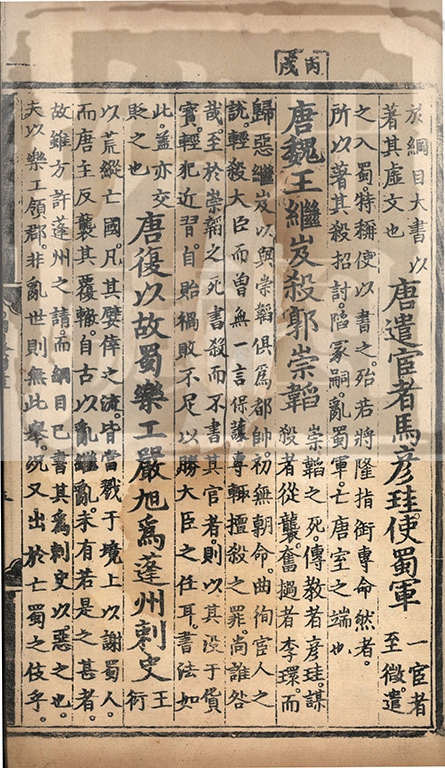 丙戌
於綱目大書以
著其虛文也
唐遣宦者馬彥珪使蜀軍
一宦者
至微遣
之入蜀。特稱使以書之。殆若將隆指銜專命然者。
所以著其殺招討。陷冢嗣。亂蜀軍。亡唐室之端也。
唐魏王繼岌殺郭崇韜
崇韜之死。傳教者彥珪。謀
殺者從襲。奮撾者李環。而
歸惡繼岌。以與崇韜俱爲都帥。初無朝命。曲徇宦人之
說。輕殺大臣。而曾無一言保護。專輒擅殺之罪。尚誰咎
哉。至於崇韜之死。書殺而不書其官者。則以其沒于貨
寶。輕犯近習。自貽禍敗。不足以勝大臣之任耳。書法如
此。蓋亦交
貶之也
唐復以故蜀樂工嚴旭爲蓬州刺史
王
衍
以荒縱亡國。凡其嬖倖之流。皆當戮于境上。以謝蜀人。
而唐主反襲其覆轍。自古以亂繼亂。未有若是之甚者。
故雖方許蓬州之請。而綱目已書其爲刺史。以惡之也。
夫以樂工領郡。非亂世則無此舉。況又出於亡蜀之伎乎。